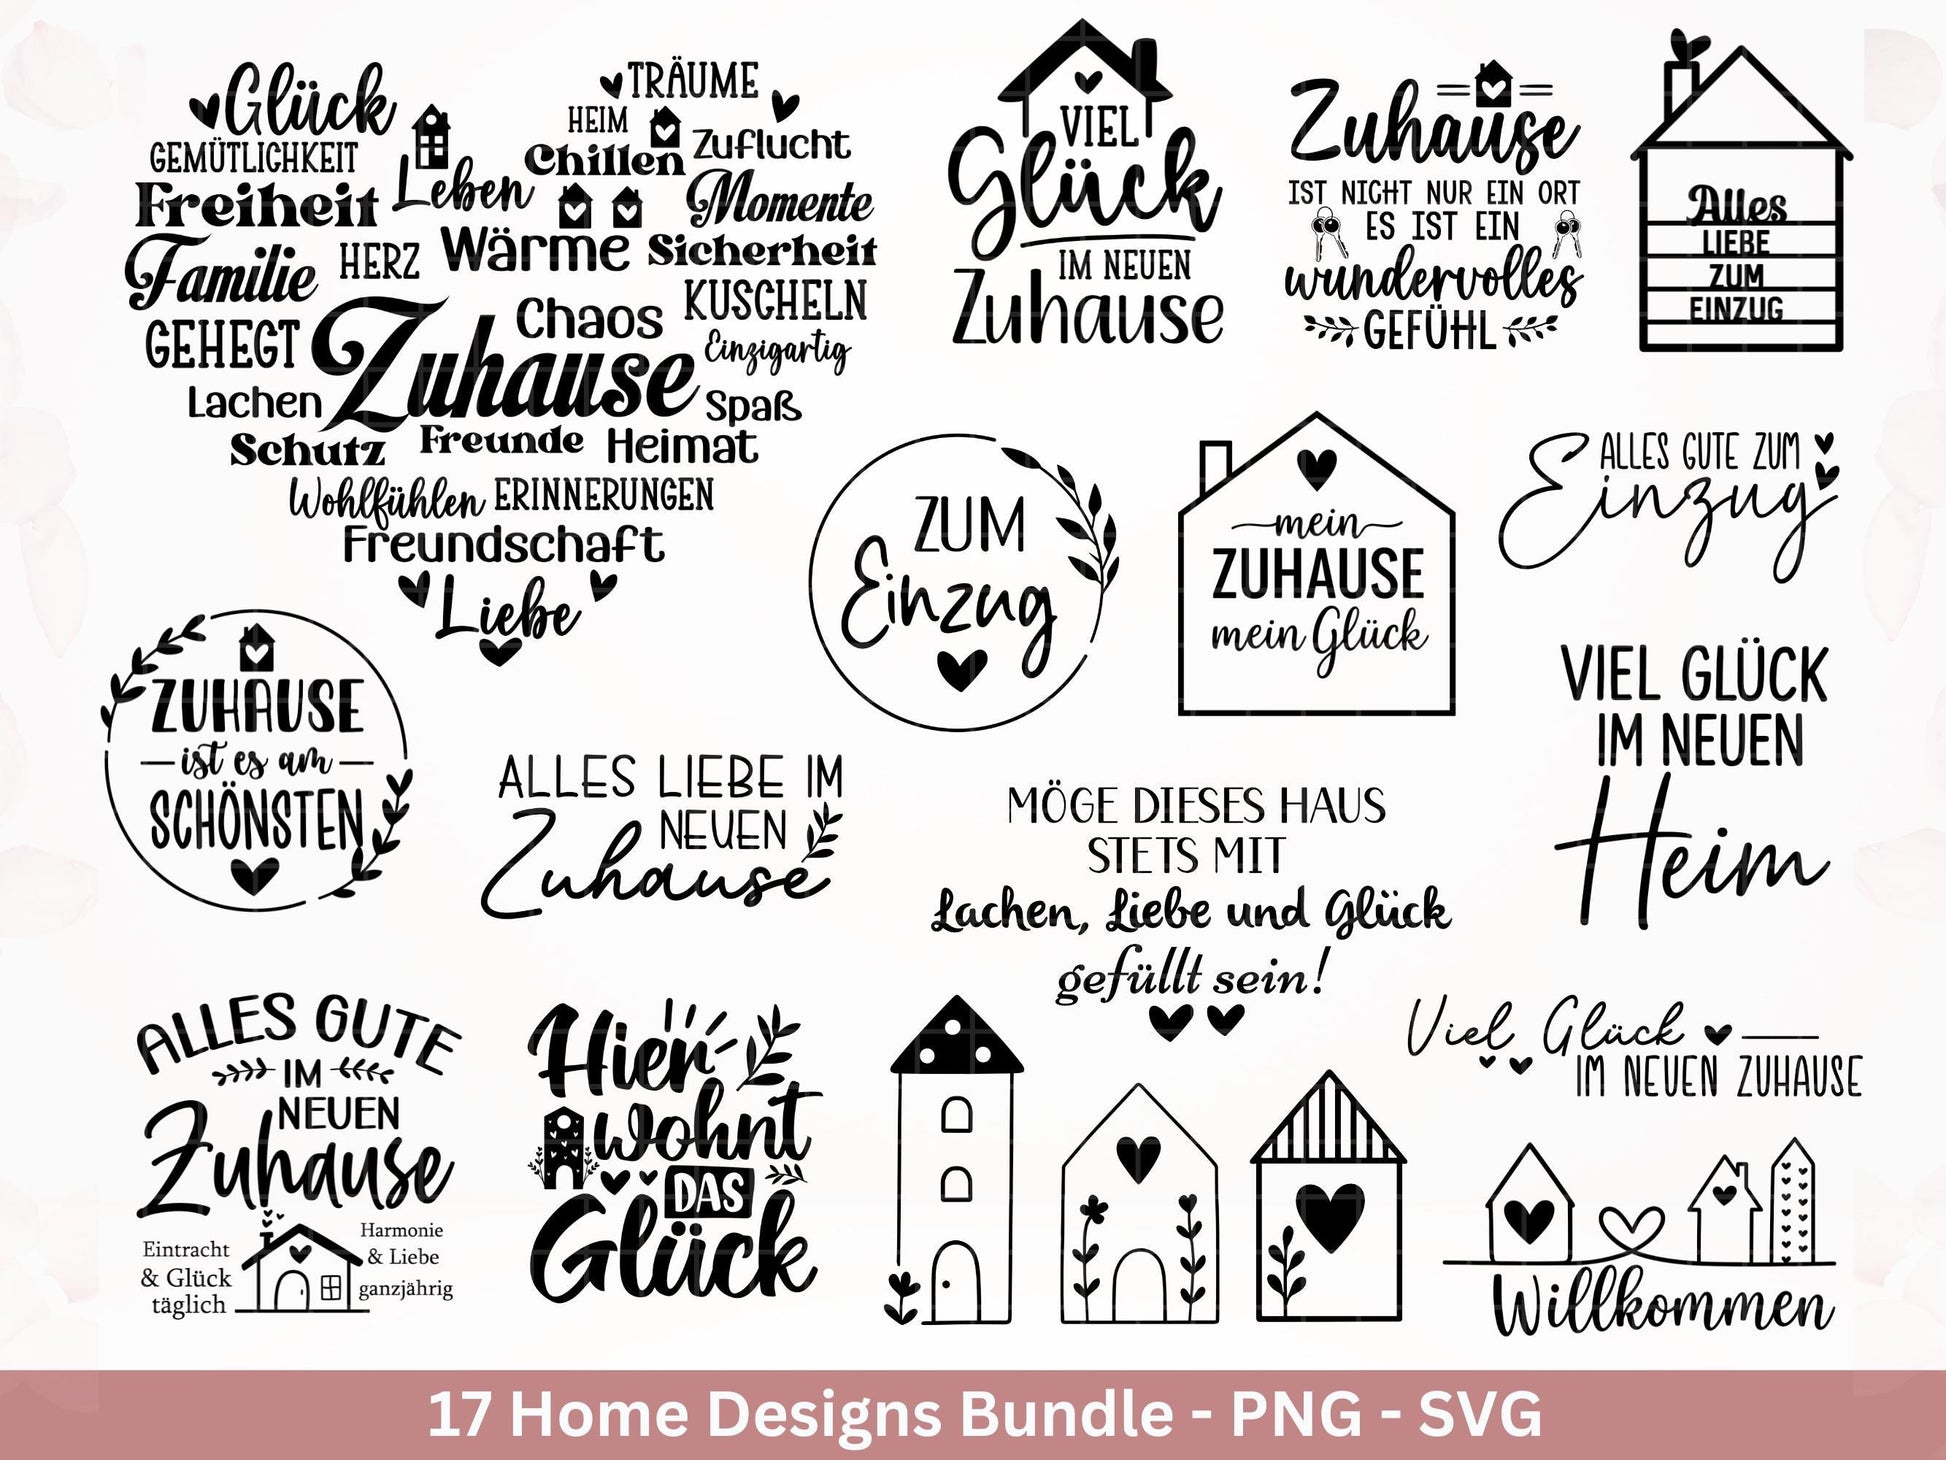 Glück
GEMÜTLICHKEIT
Freiheit
Leben
TRÄUME
HEIM
Chillen
Zuflucht
Momente
Familie
HERZ
Wärme
Sicherheit
GEHEGT
Zuhause
Chaos
KUSCHELN
Einzigartig
Lachen
Spaß
Schutz
Freunde
Heimat
Wohlfühlen
ERINNERUNGEN
Freundschaft
Liebe
VIEL
Glück
IM NEUEN
Zuhause
Zuhause
IST NICHT NUR EIN ORT
ES IST EIN
wundervolles
GEFÜHL
Alles
LIEBE
ZUM
EINZUG
ZUM
Einzug
mein
ZUHAUSE
mein Glück
ALLES GUTE ZUM
Einzug
ZUHAUSE
ist es am
SCHÖNSTEN
ALLES LIEBE IM
NEUEN
Zuhause
MÖGE DIESES HAUS
STETS MIT
Lachen, Liebe und Glück
gefüllt sein!
VIEL GLÜCK
IM NEUEN
Heim
ALLES GUTE
IM
NEUEN
Zuhause
Eintracht
& Glück
täglich
Harmonie
& Liebe
ganzjährig
Hier
wohnt
DAS
Glück
Viel Glück
IM NEUEN ZUHAUSE
Willkommen
17 Home Designs Bundle - PNG - SVG